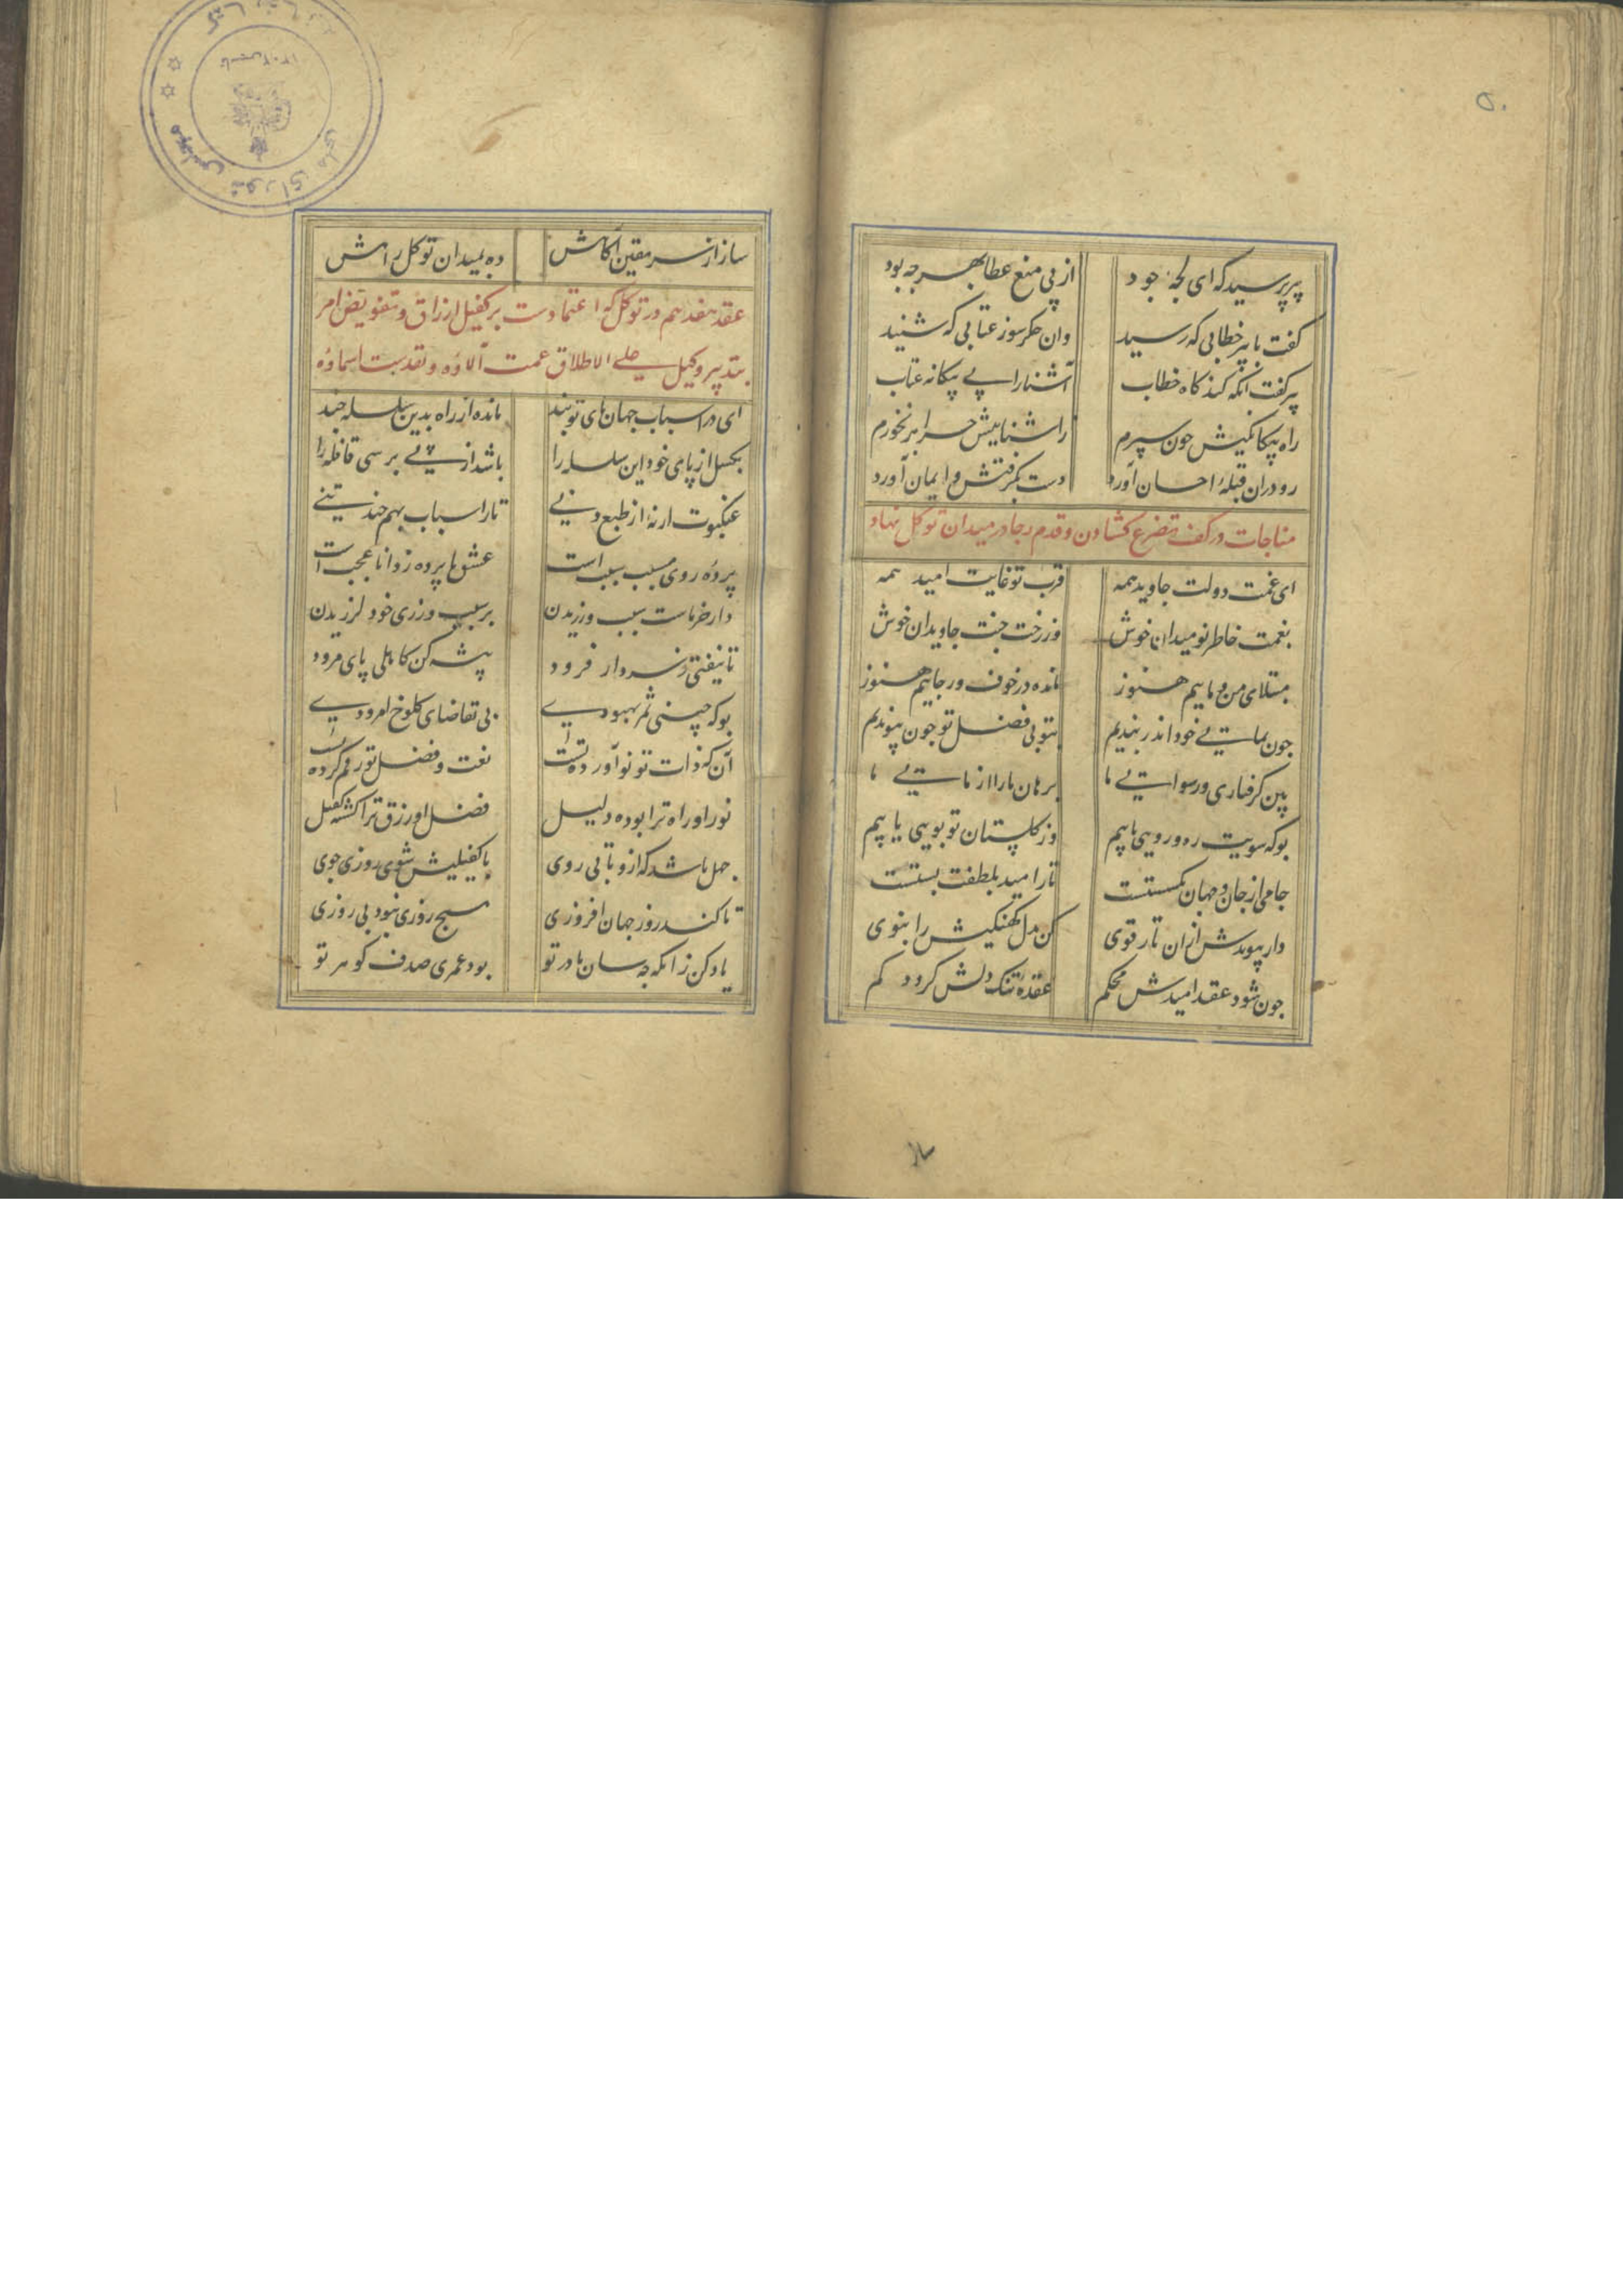 ۵۰
پیر پرسید که ای لجهٔ جود از پی منع عطا بهر چه بود
گفت با پیر خطابی که رسید وان جکر سوز عتابی که شنید
پیر گفت آنکه کند کاه خطاب آشنا را پی بیکانه عتاب
راه بیکانکیش چون سپرم ز آشناییش چرا بر نخورم
رو در آن قبلهٔ احسان آورد دست بکرفتش و ایمان آورد
مناجات در کف تضرع کشادن و قدم رجا در میدان توکل نهادن
ای غمت دولت جاوید همه قرب تو غایت امید همه
بغمت خاطر نومیدان خوش وز رخت جنت جاویدان خوش
مبتلای من و ماییم هنوز مانده در خوف و رجاییم هنوز
چون بمایی خود اندر بندیم بتو بی فضل تو چون پیوندیم
بین کرفتاری و رسوایی ما برهان ما را از مایی ما
بو که سویت ره و رویی یابیم وز کلستان تو بویی یابیم
جامی از جان و جهان بکسستست تار امید بلطفت بستست
دار پیوندش ازان تار قوی کن بدل کهنکیش را بنوی
چون شود عقد امیدش محکم عقدهٔ تنک دلش کردد کم
ساز از سر یقین آکاهش ده بمیدان توکل راهش
عقد هفدهم در توکل که اعتمادست بر کفیل ارزاق و تفویض امر
بتدبیر وکیل علی الاطلاق عمت آلاؤه و تقدست اسماؤه
ای در اسباب جهان پای تو بند مانده از راه بدین سلسله چند
بکسل از پای خود این سلسله را باشد از پی برسی قافله را
عنکبوت ار نهٔ از طبع دنی تار اسباب بهم چند تنی
پردهٔ روی مسبب سببست عشق با پرده ز دانا عجبست
دار خرماست سبب ورزیدن بر سبب ورزی خود لرزیدن
تا نیفتی ز سر دار فرود پیشه کن کاهلی پای مرود
بو که چینی ثمر بهبودی بی تقاضای کلوخ امرودی
آن که ذات تو نو آوردهٔ تست نعت و فضل تو رقم کرده
نور او راه ترا بوده دلیل فضل او رزق ترا کشته کفیل
جهل باشد که ازو تابی روی با کفیلیش شوی روزی جوی
تا کند روز جهان افروزی هیچ روزی نبود بی روزی
یاد کن زانکه چه سان مادر تو بود عمری صدف کوهر تو